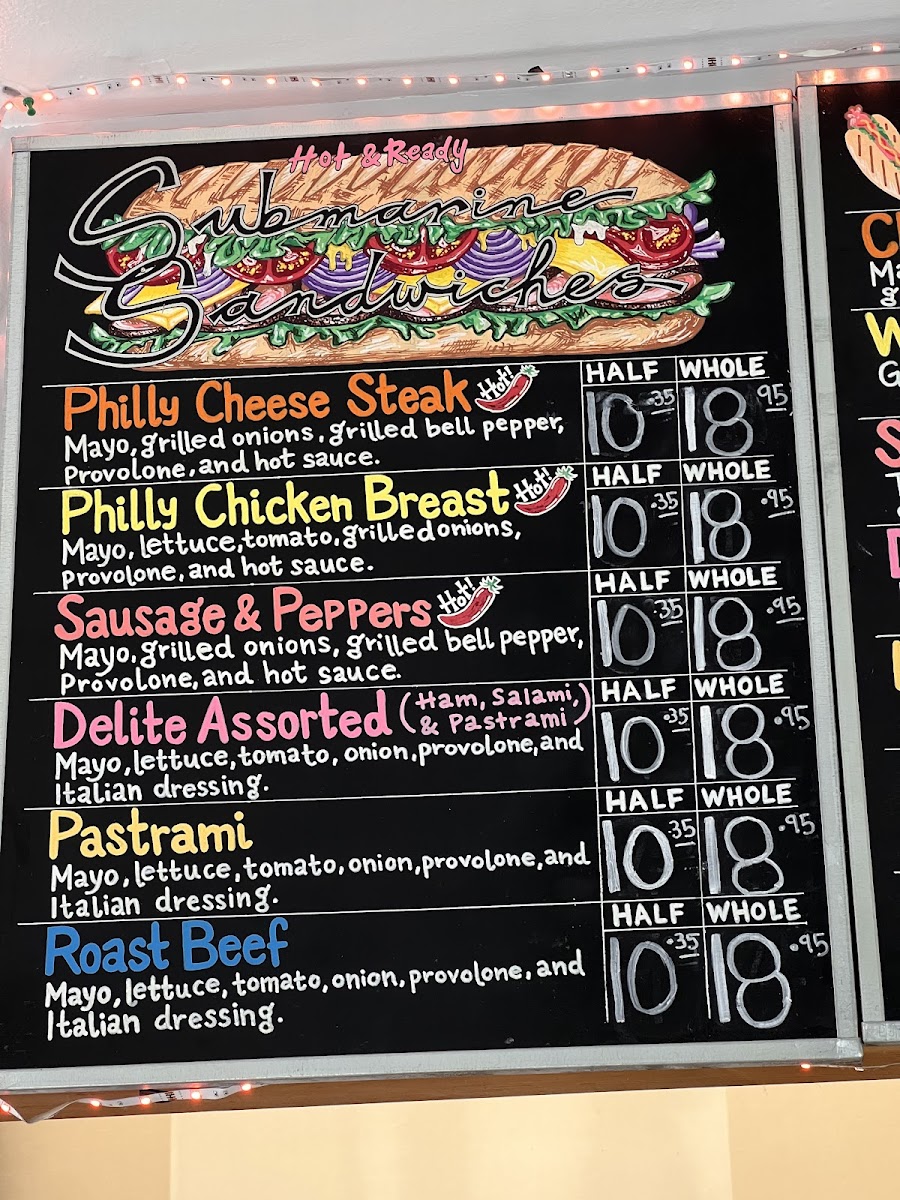 Hot & Ready
Submarine
Sandwiches
HALF WHOLE
Philly Cheese Steak Hot! 10.35 18.95
Mayo, grilled onions, grilled bell pepper,
Provolone, and hot sauce.
HALF WHOLE
Philly Chicken Breast Hot! 10.35 18.95
Mayo, lettuce, tomato, grilled onions,
provolone, and hot sauce.
HALF WHOLE
Sausage & Peppers Hot! 10.35 18.95
Mayo, grilled onions, grilled bell pepper,
Provolone, and hot sauce.
HALF WHOLE
Delite Assorted (Ham, Salami, & Pastrami) 10.35 18.95
Mayo, lettuce, tomato, onion, provolone, and
Italian dressing.
HALF WHOLE
Pastrami 10.35 18.95
Mayo, lettuce, tomato, onion, provolone, and
Italian dressing.
HALF WHOLE
Roast Beef 10.35 18.95
Mayo, lettuce, tomato, onion, provolone, and
Italian dressing.